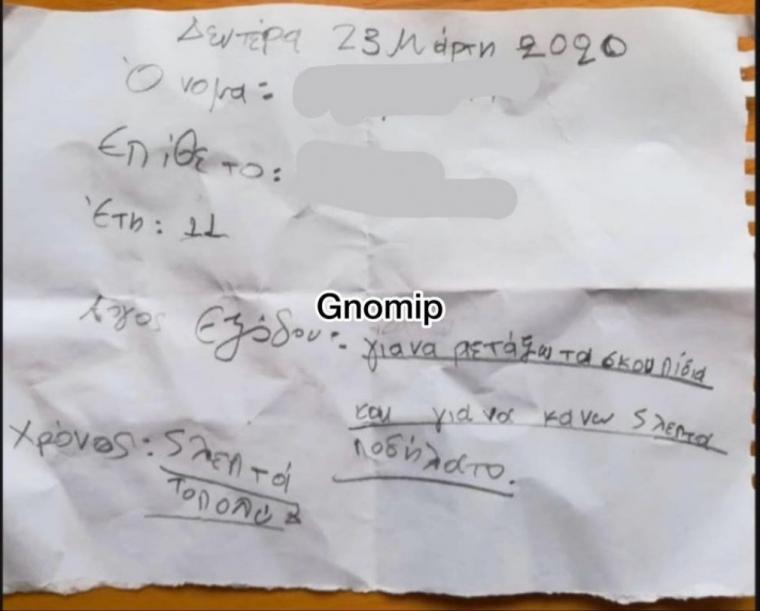 Δευτέρα 23 Μάρτη 2020
Όνομα:
Επίθετο:
Έτη: 11
Gnomip
Λγος Εξόδου: για να πετάξω τα σκουπίδια
και για να κάνω 5 λεπτα
ποδήλατο.
Χρόνος: 5 λεπτά
το πολύ